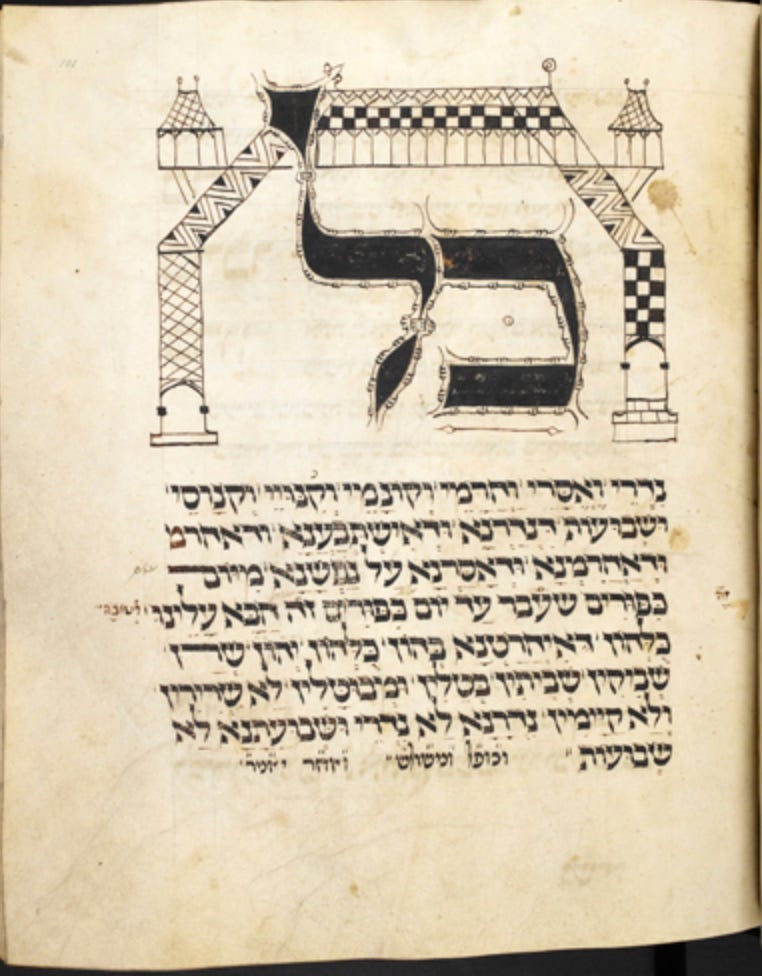 כל
נדרי ואסרי והרמי וקונמי וקנויי וקנוסי
ושבועות דנדרנא ודאישתבענא ודאהרמ
ודאהרמנא ודאסרנא על נפשנא מיום
כפורים שעבר עד יום כפורים זה הבא עלינו
כלהון דאיחרטנא בהון כלהון יהון שרן
שביקין שביתין בטלין ומבוטלין לא שרירין
ולא קיימין נדרנא לא נדרי ושבועתנא לא
שבועות וכופל ומשלש